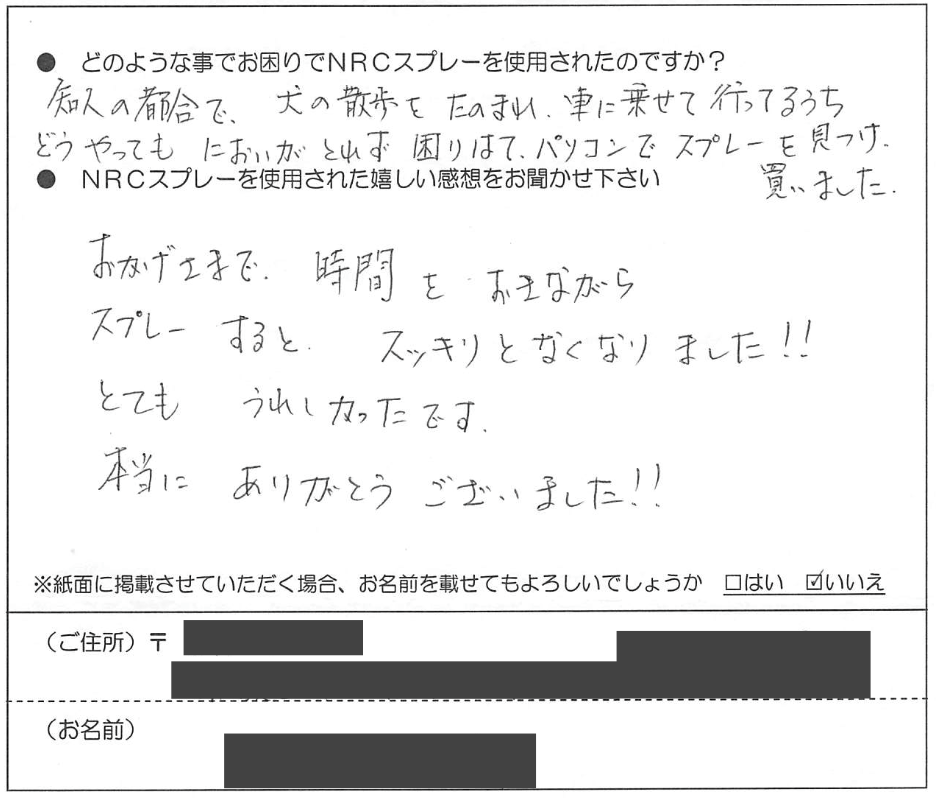 ● どのような事でお困りでNRCスプレーを使用されたのですか？
知人の都合で、犬の散歩をたのまれ、車に乗せて行ってるうち
どうやってもにおいがとれず困りはて、パソコンでスプレーを見つけ、
買いました。
● NRCスプレーを使用された嬉しい感想をお聞かせ下さい
おかげさまで、時間をおきながら
スプレーすると、スッキリとなくなりました!!
とてもうれしかったです。
本当にありがとうございました!!
※紙面に掲載させていただく場合、お名前を載せてもよろしいでしょうか □はい ☑いいえ
（ご住所）〒
（お名前）